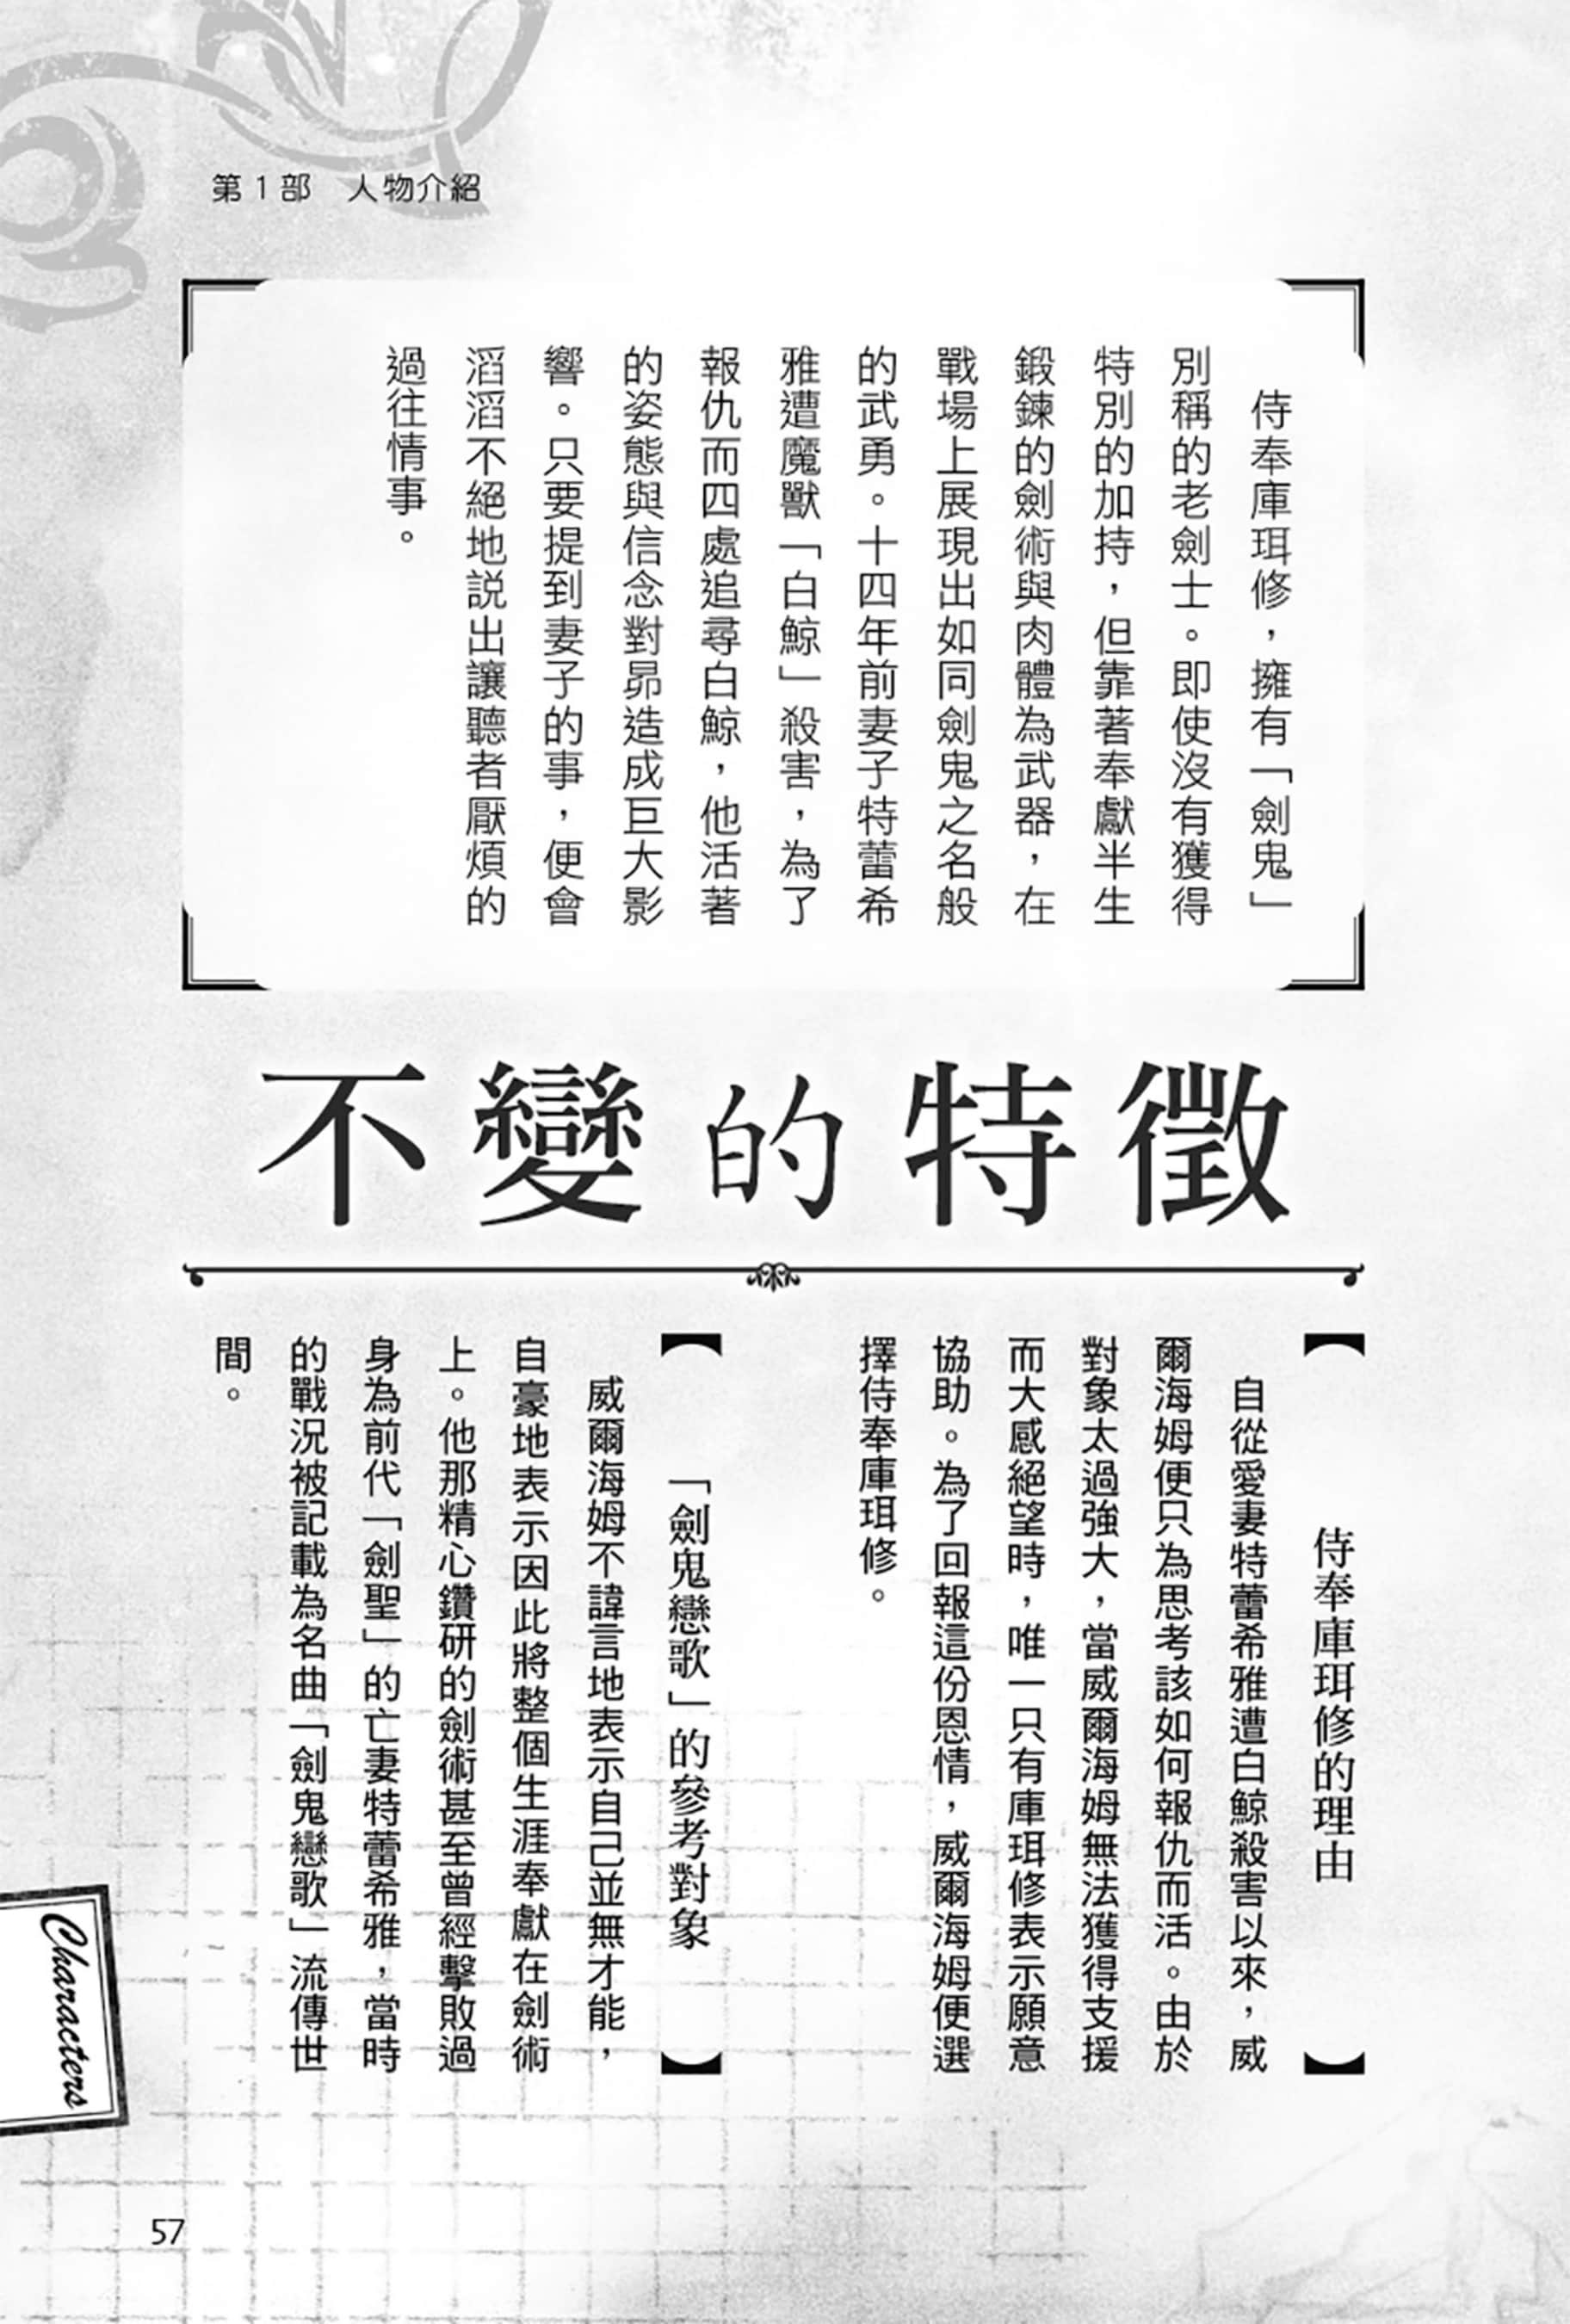 第1部　人物介紹
侍奉庫珥修，擁有「劍鬼」
別稱的老劍士。即使沒有獲得
特別的加持，但靠著奉獻半生
鍛鍊的劍術與肉體為武器，在
戰場上展現出如同劍鬼之名般
的武勇。十四年前妻子特蕾希
雅遭魔獸「白鯨」殺害，為了
報仇而四處追尋白鯨，他活著
的姿態與信念對昴造成巨大影
響。只要提到妻子的事，便會
滔滔不絕地說出讓聽者厭煩的
過往情事。
不變的特徵
【侍奉庫珥修的理由】
自從愛妻特蕾希雅遭白鯨殺害以來，威
爾海姆便只為思考該如何報仇而活。由於
對象太過強大，當威爾海姆無法獲得支援
而大感絕望時，唯一只有庫珥修表示願意
協助。為了回報這份恩情，威爾海姆便選
擇侍奉庫珥修。
【「劍鬼戀歌」的參考對象】
威爾海姆不諱言地表示自己並無才能，
自豪地表示因此將整個生涯奉獻在劍術
上。他那精心鑽研的劍術甚至曾經擊敗過
身為前代「劍聖」的亡妻特蕾希雅，當時
的戰況被記載為名曲「劍鬼戀歌」流傳世
間。
Characters
57